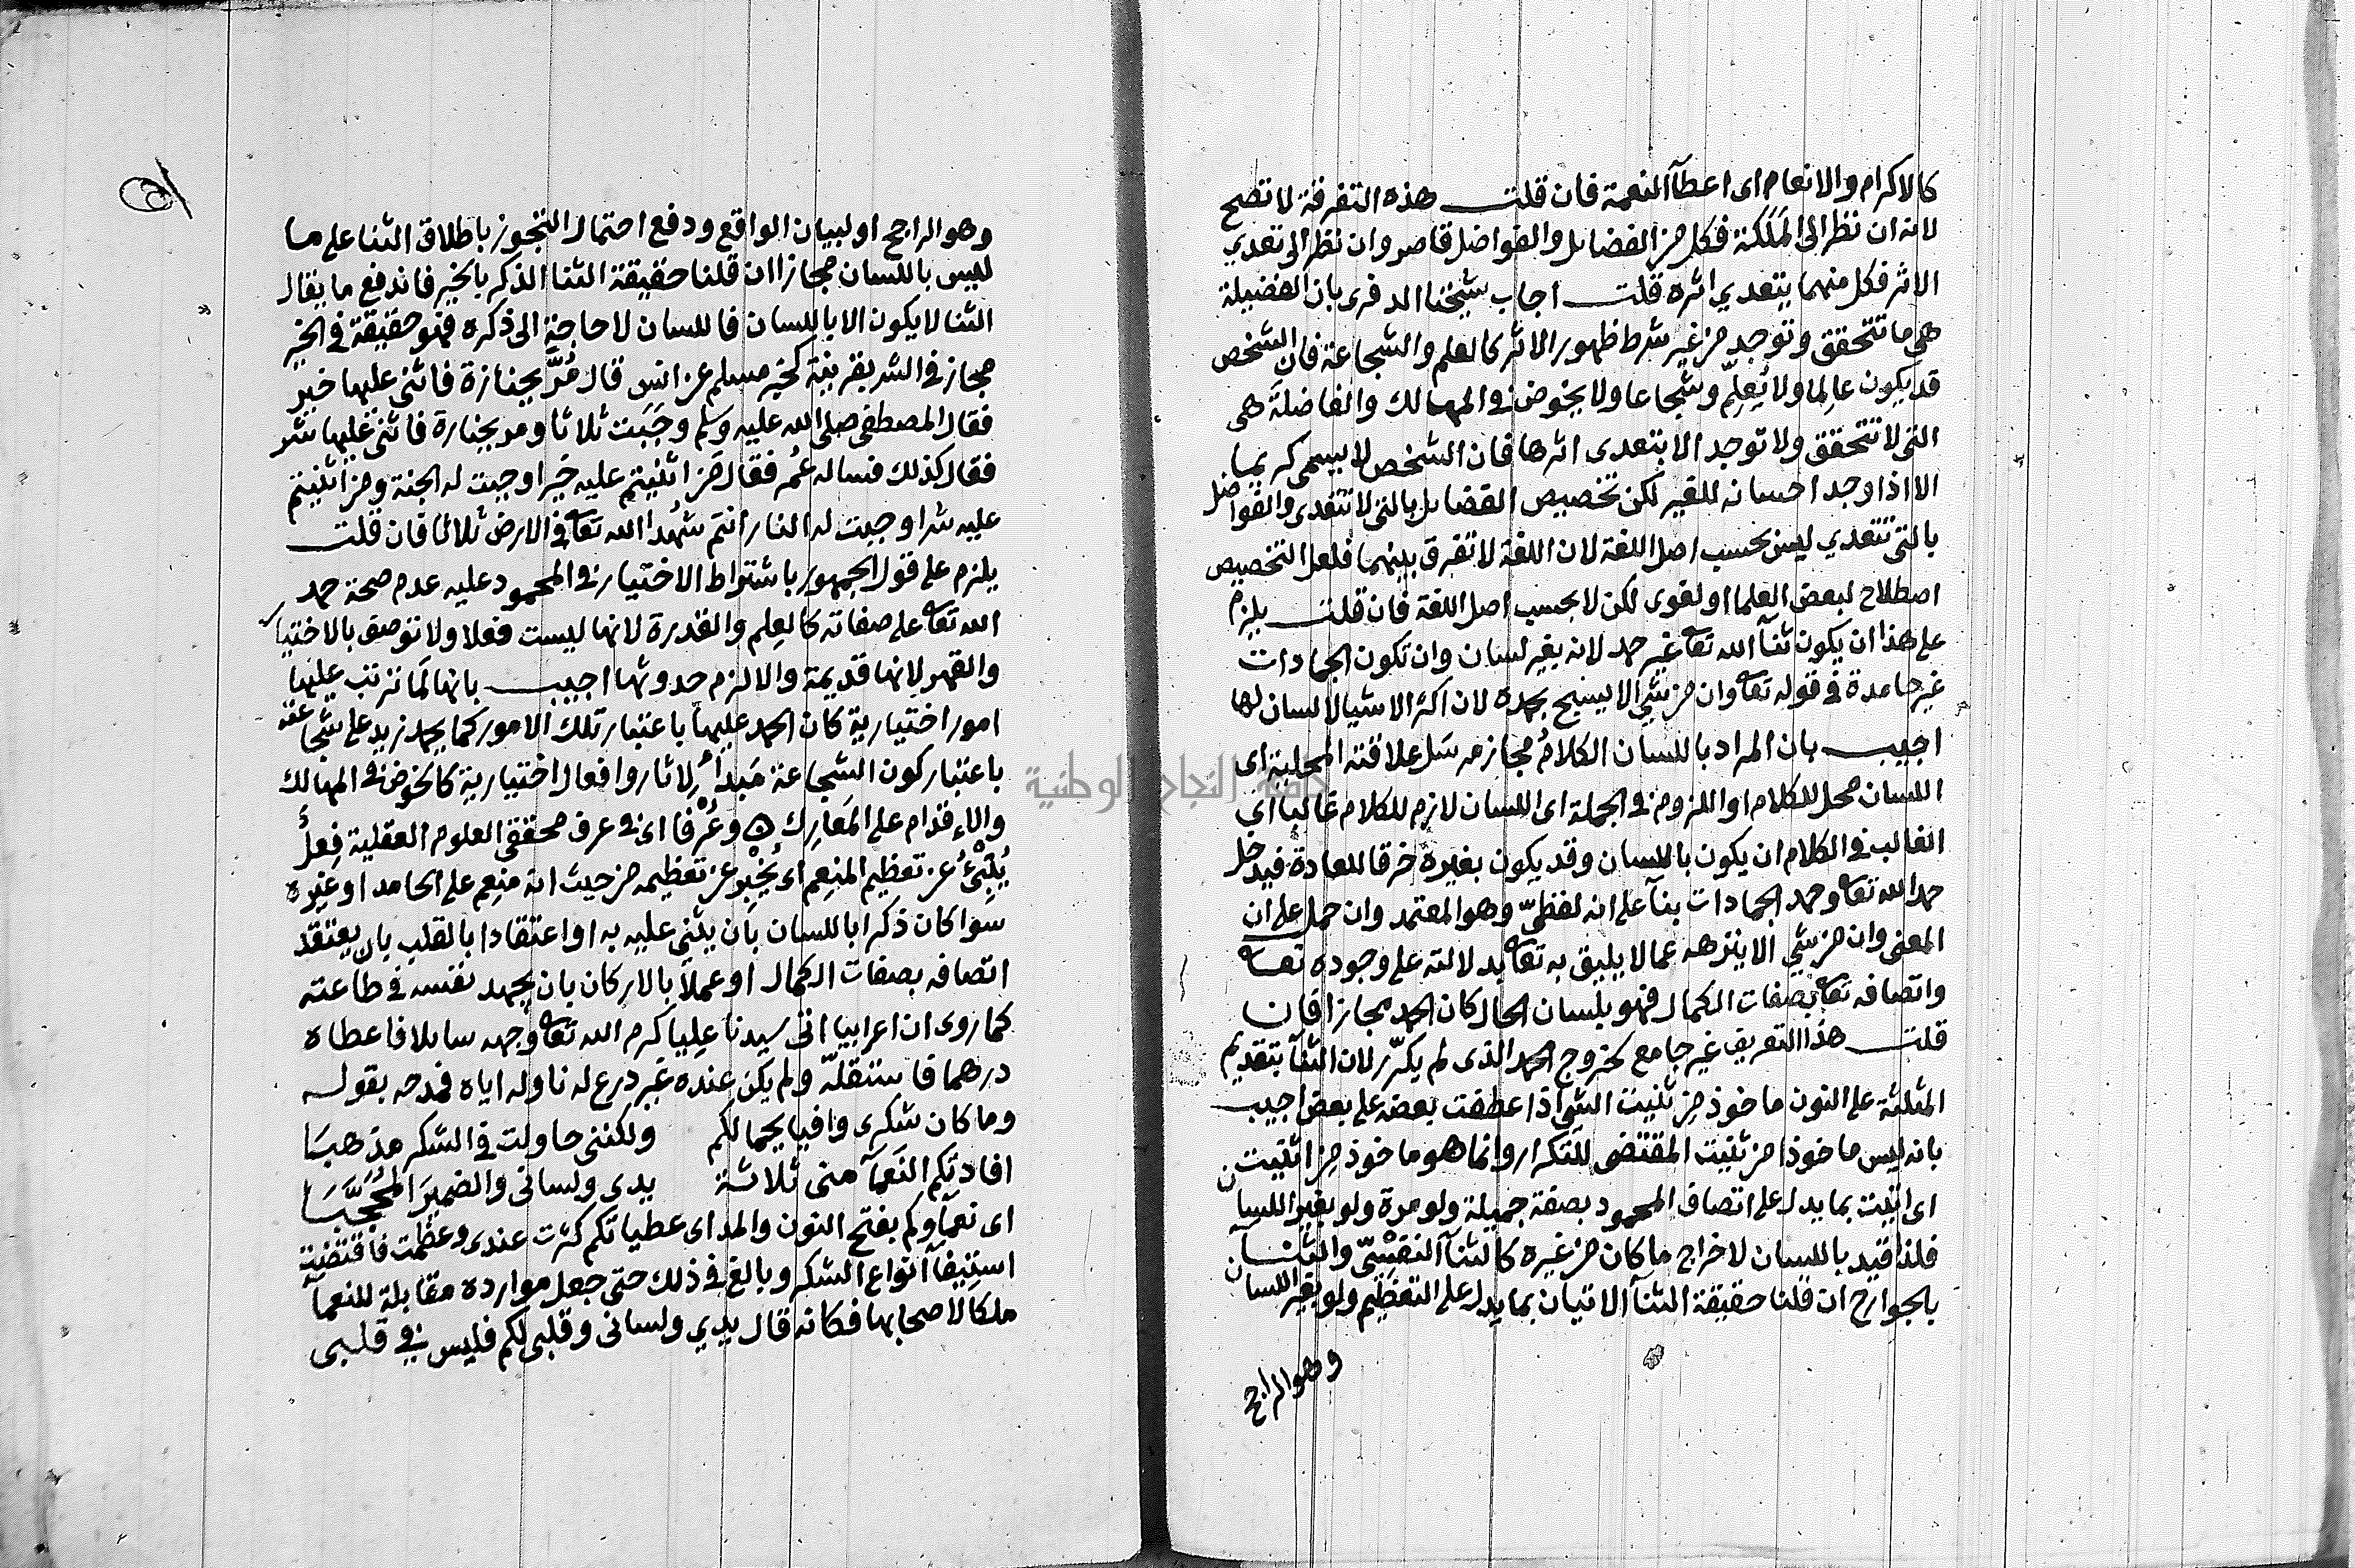 كالاكرام والانعام اى اعطآ النعمة فان قلت هذه التفرقة لا تصح
لانه ان نظر الى المَلَكة فكل من الفضايل والفواضل قاصر وان نظر الى تعدي
الاثر فكل منهما يتعدي اثره قلت اجاب شيخنا الدفرى بان الفضيلة
هى ما تتحقق وتوجد من غير شرط ظهور الاثر كالعلم والشجاعة فان الشخص
قد يكون عالما ولا يُعلِّم وشجاعا ولا يخوض فى المهالك والفاضلة هى
التى لا تتحقق ولا توجد الا بتعدى اثرها فان الشخص لا يسمى كريما
الا اذا وجد احسانه للغير لكن تخصيص الفضايل بالتى لا تتعدى والفواضل
بالتى تتعدي ليس بحسب اصل اللغة لان اللغة لا تفرق بينهما فلعل التخصيص
اصطلاح لبعض العلما او لغوى لكن لا بحسب اصل اللغة فان قلت يلزم
على هذا ان يكون ثنآ الله تعا غير حمد لانه بغير لسان وان تكون الجمادات
غير حامدة فى قوله تعا وان من شئ الا يسبح بحمده لان اكثر الاشيا لا لسان لها
اجيب بان المراد باللسان الكلامُ مجاز مرسَل علاقته المحلية اى
اللسان محل للكلام او اللزوم فى الجملة اى اللسان لازم للكلام غالبا اى
الغالب فى الكلام ان يكون باللسان وقد يكون بغيره خرقا للعادة فيدخل
حمد الله تعا وحمد الجمادات بنآ على انه لفظيّ وهو المعتمد وان حمل على ان
المعنى وان من شئ الا ينزهه عما لا يليق به تعا بدلالته على وجوده تعا
واتصافه تعا بصفات الكمال فهو بلسان الحال كان الحمد مجازا فان
قلت هذا التعريف غير جامع لخروج الحمد الذى لم يكرّر لان الثنآ بتقديم
المثلثة على النون ماخوذ من ثنيت الشئ اذا عطفت بعضه على بعض اجيب
بانه ليس ماخوذا من ثنيت المقتضى للتكرار وانما هو ماخوذ من اثنيت
اى اتيت بما يدل على اتصاف المحمود بصفة جميلة ولو مرة ولو بغير اللسان
فلذا قيد باللسان لاخراج ما كان من غيره كالثنآ النفسيّ والثنآ
بالجوارح ان قلنا حقيقة الثنآ الاتيان بما يدل على التعظيم ولو بغير اللسان
وهو الراجح
وهو الراجح او لبيان الواقع ودفع احتمال التجوز باطلاق الثنا على ما
ليس باللسان مجازا ان قلنا حقيقة الثنا الذكر بالخير فاندفع ما يقال
الثنا لا يكون الا باللسان فاللسان لا حاجة الى ذكره فهو حقيقة فى الخير
مجاز فى الشر بقرينة كخبر مسلم عن انس قال مُرَّ بجنازة فاثنى عليها خير
فقال المصطفى صلى الله عليه وسلم وجَبَت ثلاثا ومر بجنازة فاثنى عليها شر
فقال كذلك فساله عُمر فقال مَن اثنيتم عليه خيرا وجبت له الجنة ومن اثنيتم
عليه شرا وجبت له النار انتم شُهدا الله تعا فى الارض ثلاثا فان قلت
يلزم على قول الجمهور باشتراط الاختيار فى المحمود عليه عدم صحة حمد
الله تعا على صفاته كالعلم والقدرة لانها ليست فعلا ولا توصف بالاختيار
والقهر لانها قديمة والا لزم حدوثها اجيب بانها لَما ترتب عليها
امور اختيارية كان الحمد عليها باعتبار تلك الامور كما يحمد زيد على شجاعته
باعتبار كون الشجاعة مَبدأً لِاثار وافعال اختيارية كالخوض فى المهالك
والاِقدام على المَعارِك ه وعُرْفا اى فى عرف محققى العلوم العقلية فِعلٌ
يُنْبِئُ عن تعظيم المنعِم اى يُخْبِر عن تعظيمه من حيث انه منعِم على الحامد او غيره
سوا كان ذكرا باللسان بان يثنِى عليه به او اعتقادا بالقلب بان يعتقد
اتصافه بصفات الكمال او عملا بالاركان بان يجهد نفسه فى طاعته
كما روى ان اعرابيا اتى سيدنا علِيا كرم الله تعا وجهه سايلا فاعطاه
درهما فاستقلّه ولم يكن عنده غير درع له ناوله اياه فمدحه بقوله
وما كان شكرى وافيا بجمالكم ولكننى حاولت فى الشكر مذهبَا
افادتكم النَعمآ منى ثلاثة يدى ولسانى والضميرَ المُحَجَّبَا
اى نعمآوكم بفتح النون والمد اى عطياتكم كثرت عندى وعظمت فاقتضت
استيفآ انواع الشكر وبالغ فى ذلك حتى جعل موارده مقابلة للنعمآ
ملكا لاصحابها فكانه قال يدي ولسانى وقلبى لكم فليس فى قلبى
جامعة النجاح الوطنية